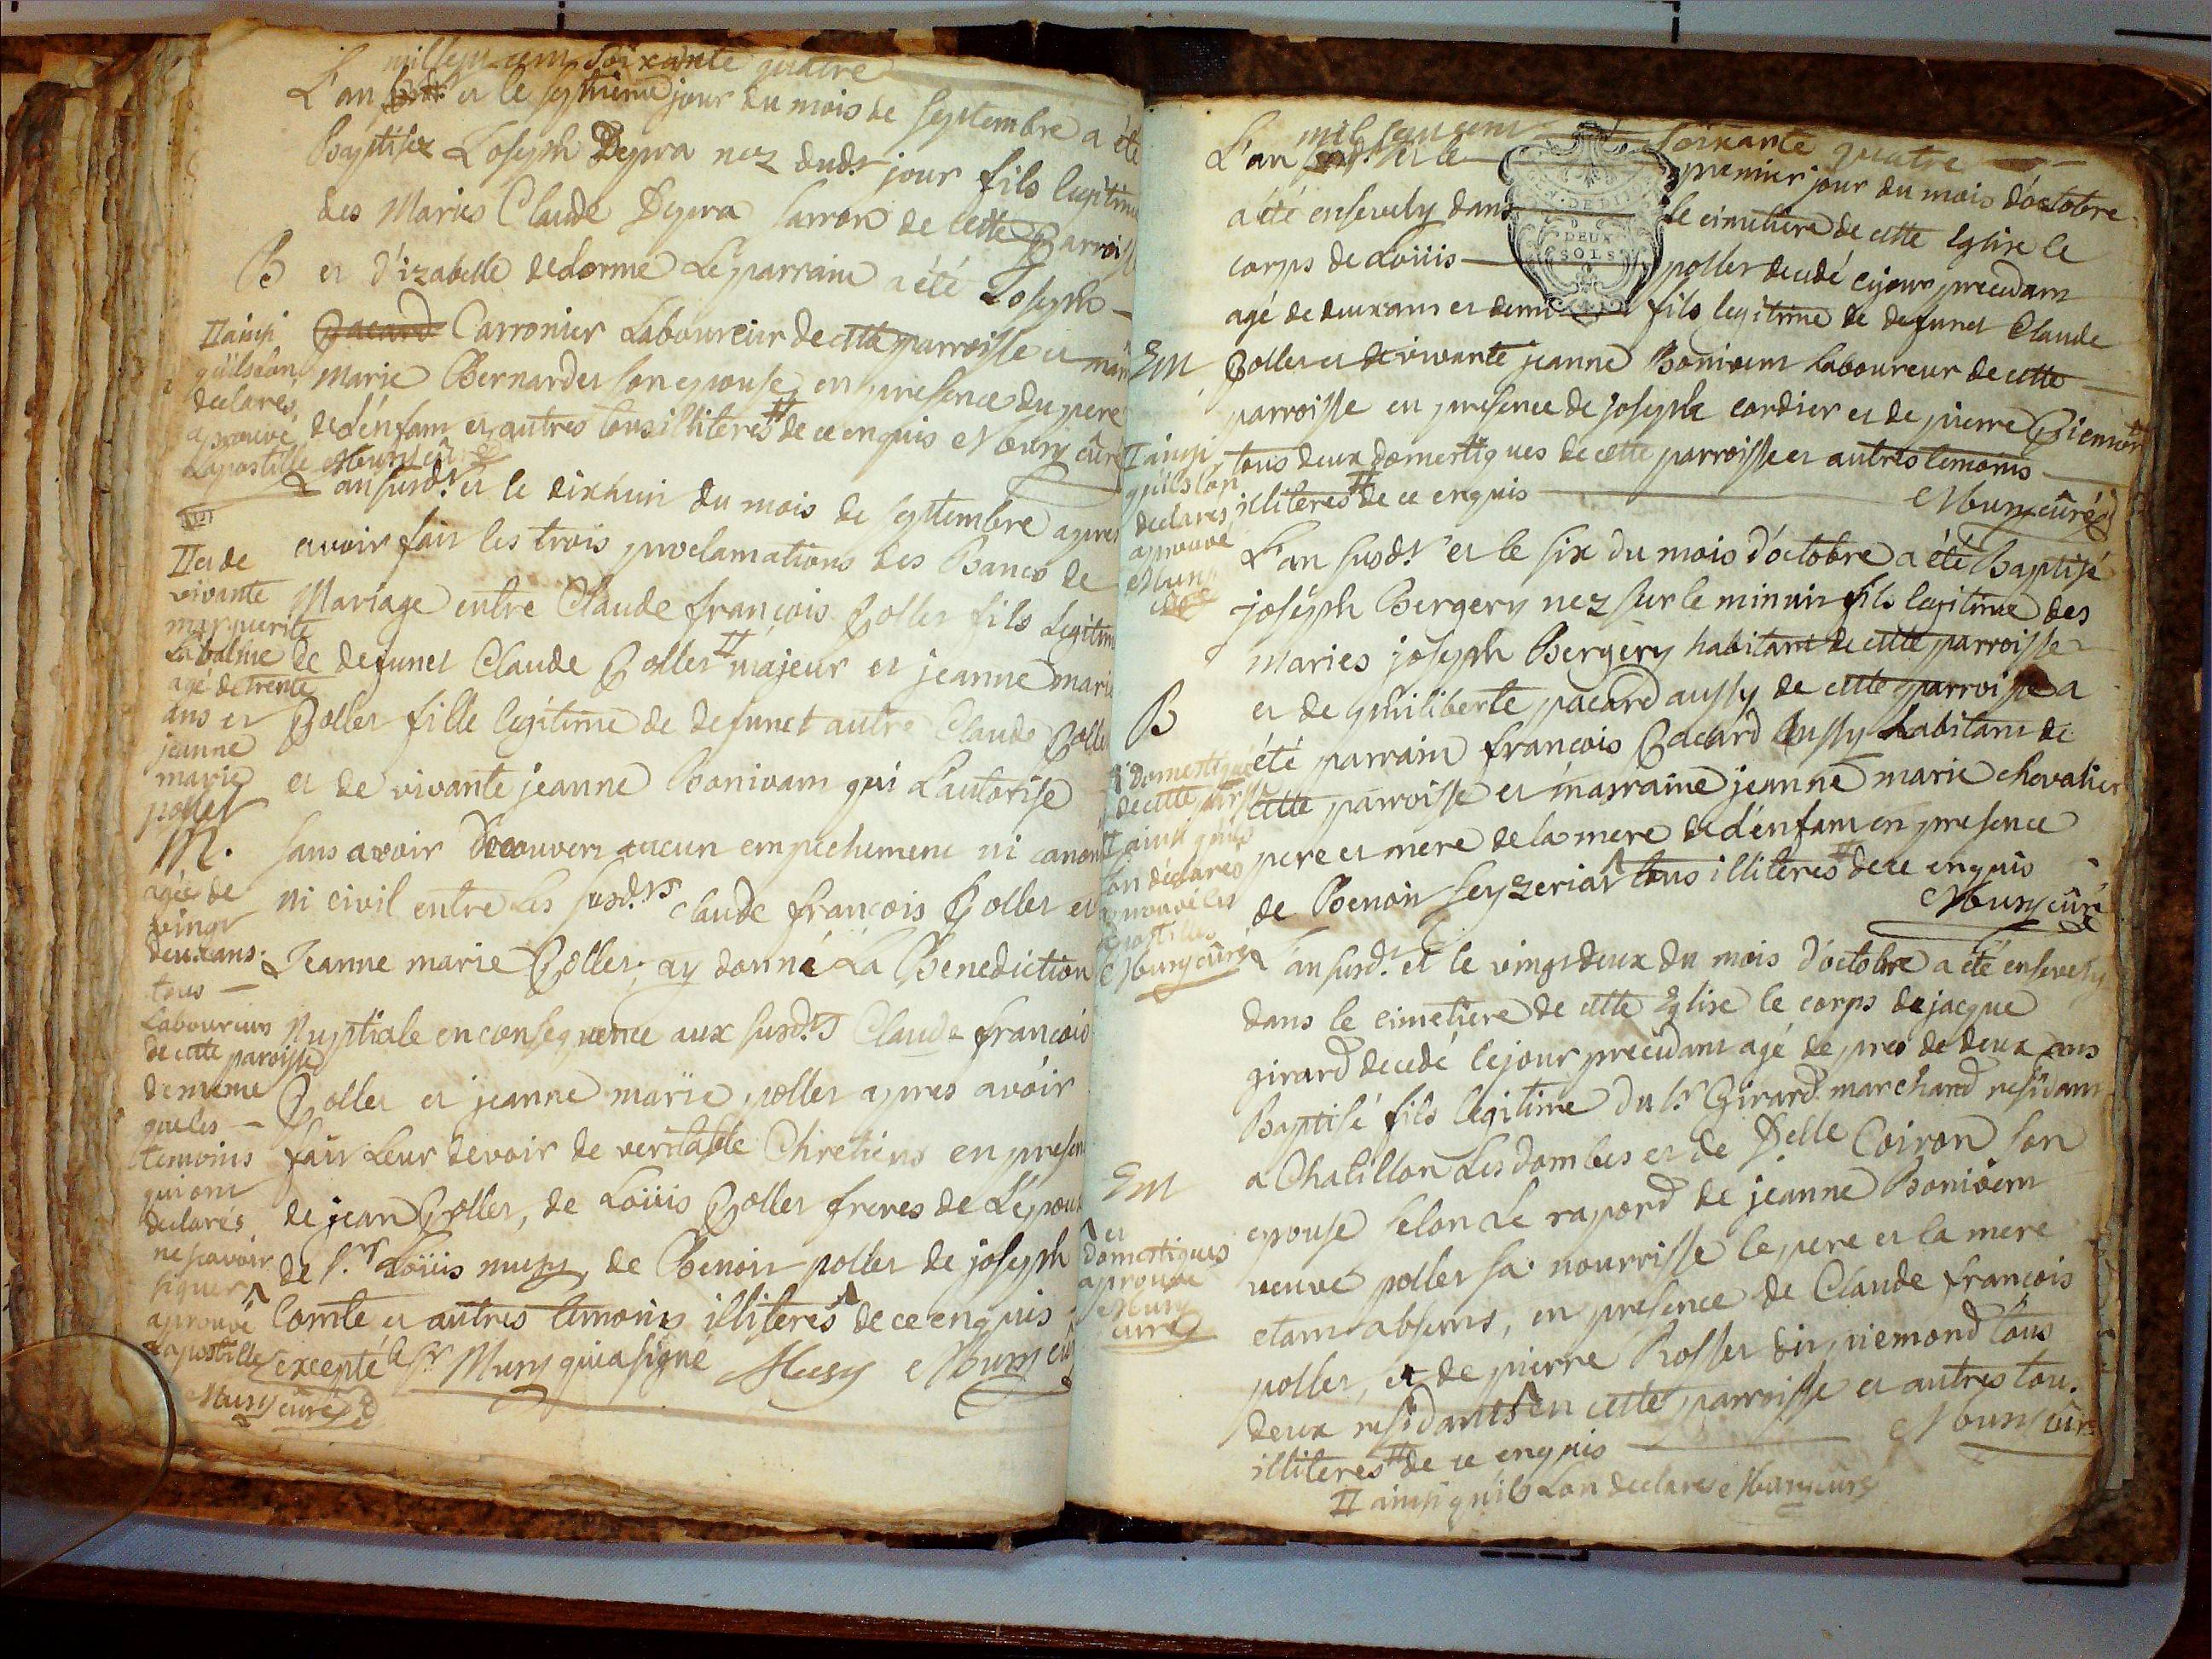 mil sept cent soixante quatre
L'an et le septieme jour du mois de septembre a été
Baptisez Joseph Depra nez dudt jour fils legitime
des Maries Claude Depra sarron de cette Parroisse
B
et d'izabelle dedorme Le parrain a été Joseph
Pacard Carronier Laboureur de cette parroisse et
Marie Bernardet son epouse en presence du pere
de d'enfant et autres tous illiterés # de ce enquis Mury curé
II ainsi
qu'ils l'on
declarés,
aprouvé
L'apostille Mury curé
L'an susdt et le dixhuit du mois de septembre apres
avoir fait les trois proclamations des Bancs de
Mariage entre Claude françois Pollet fils Legitime
de defunct Claude Pollet II majeur et jeanne marie
Pollet fille legitime de defunct autre Claude Pollet
et de vivante jeanne Bonivant qui L'autorise
sans avoir decouvert aucun empechement ni canon
ni civil entre les susdts claude françois Pollet et
Jeanne marie Pollet, ay donné La Benediction
Nuptiale en consequence aux susdts Claude françois
Pollet et jeanne marie pollet apres avoir
fait Leur devoir de veritable Chretiens en presen
de jean Pollet, de Loüis Pollet freres de L'epoux
de sr Loüis mury, de Benoit pollet de joseph
Comte et autres temoins illiterés de ce enquis
excepté le sr Mury qui a signé Mury Mury curé
II et de
vivante
marguerite
Labalme
agé de trente
ans et
jeanne
marie
pollet
M.
agée de
vingt
deux ans.
tous
Laboureurs
de cette paroisse
de meme
que les
temoins
qui ont
declarés
ne scavoir
signer
aprouvé
L'apostille
Mury curé
mil sept cent soixante quatre
L'an et le premier jour du mois d'octobre
a été ensevely dans le cimetière de cette Eglise le
corps de Loüis pollet decedé le jour precedant
agé de deux ans et demi fils legitime de defunct Claude
Em
Pollet et de vivante jeanne Bonivent Laboureur de cette
parroisse en presence de joseph cordier et de pierre Piemont
tous deux domestiques de cette parroisse et autres temoins
illiterés # de ce enquis Mury curé
II ainsi
qu'ils l'on
declarés
aprouvé
Mury
curé
DEUX
SOLS
L'an susdt et le six du mois d'octobre a été Baptisé
joséph Bergery nez sur le minuit fils legitime des
Maries joseph Bergery habitant de cette parroisse
et de philiberte pacard aussy de cette parroisse a
B
été parrain francois Pacard aussy habitant de
cette parroisse et marraine jeanne marie chevalier
pere et mere de la mere de d'enfant en presence
de Benoit seyzeriat tous illiterés # de ce enquis
Mury curé
domestique
de cette parrsse
II ainsi qu'ils
l'on declarés
aprouvé les
apostilles
Mury curé
L'an susdt et le vingt deux du mois d'octobre a été ensevely
dans le cimetiere de cette Eglise le corps de jacque
girard decedé le jour precedant agé de pres de deux ans
Baptisé fils legitime du sr Girard marchand residant
a Chatillon Les dombes et de Delle Coiron son
Em
epouse selon Le raport de jeanne Bonivent
veuve pollet sa nourrisse le pere et la mere
etant absents, en presence de Claude françois
pollet, et de pierre Rosset dit piemond tous
deux residants en cette parroisse et autres tous
illiterés # de ce enquis Mury curé
et
domestiques
aprouvé
Mury
curé
II ainsi qu'ils L'on declaré Mury curé